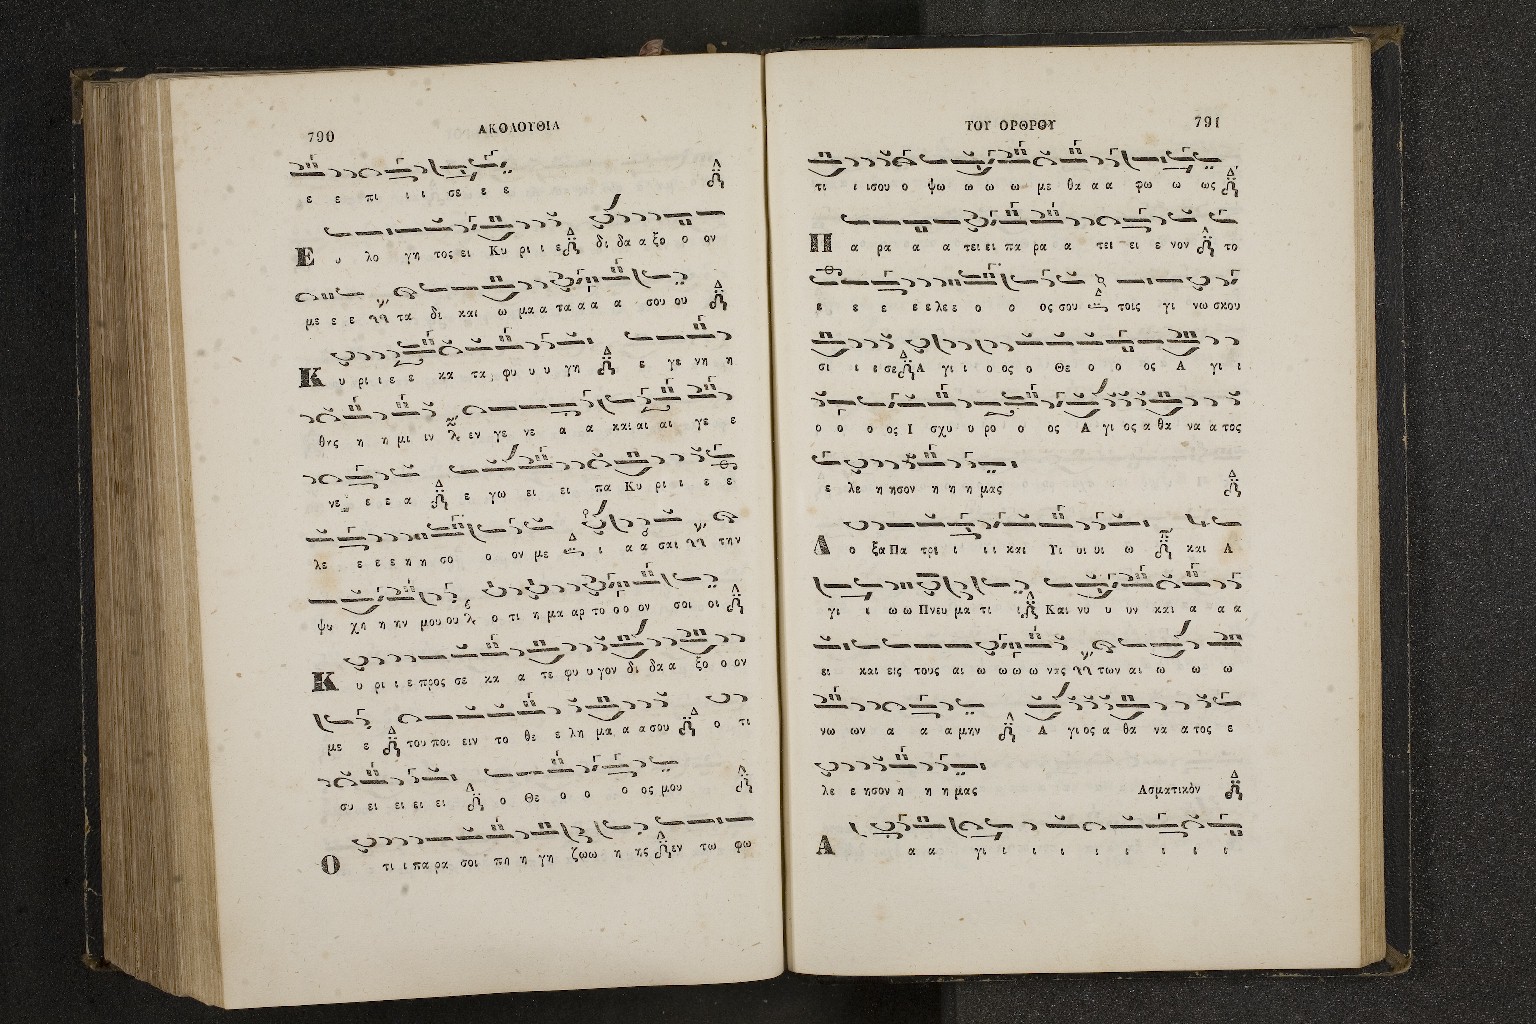 790
ΑΚΟΛΟΥΘΙΑ
ε ε πι ι ι σε ε ε
Ε υ λο γη τος ει Κυ ρι ι ε δι δα α ξο ο ον
με ε ε τα δι και ω μα α τα α α α σου ου
Κ υ ρι ι ε ε κα τα φυ υ υ γη ε γε νη η
θης η η μι ιν εν γε νε α α και αι αι γε ε
νε ε ε α ε γω ει ει πα Κυ ρι ι ε ε
λε ε ε ε η η σο ο ον με ι α α σαι την
ψυ χη η ην μου ου ο τι η μα αρ το ο ο ον σοι οι
Κ υ ρι ι ε προς σε κα α τε φυ υ γον δι δα α ξο ο ον
με ε του ποι ειν το θε ε λη μα α α σου ο τι
συ ει ει ει ει ο Θε ο ο ο ος μου
Ο τι ι πα ρα σοι πη η γη ζωω η ης εν τω φω
ΤΟΥ ΟΡΘΡΟΥ
791
τι ι ισου ο ψω ω ω ω με θα α α φω ω ως
Π α ρα α α τει ει πα ρα α τει ει ε νον το
ε ε ε ε ε λε ε ο ο ος σου τοις γι νω σκου
σι ι ι σε Α γι ι ο ος ο Θε ο ο ος Α γι ι
ο ο ο ος Ι σχυ υ ρο ο ος Α γι ος α θα να α τος
ε λε η ησον η η η μας
Δ ο ξα Πα τρι ι ι ι και Υι υι υι ω και Α
γι ι ω ω Πνευ μα τι ι Και νυ υ υν και α α α
ει και εις τους αι ω ω ω ω νας των αι ω ω ω
νω ων α α α μην Α γι ος α θα να α τος ε
λε ε ησον η η η μας Ασματικὸν
Α α α γι ι ι ι ι ι ι ι ι